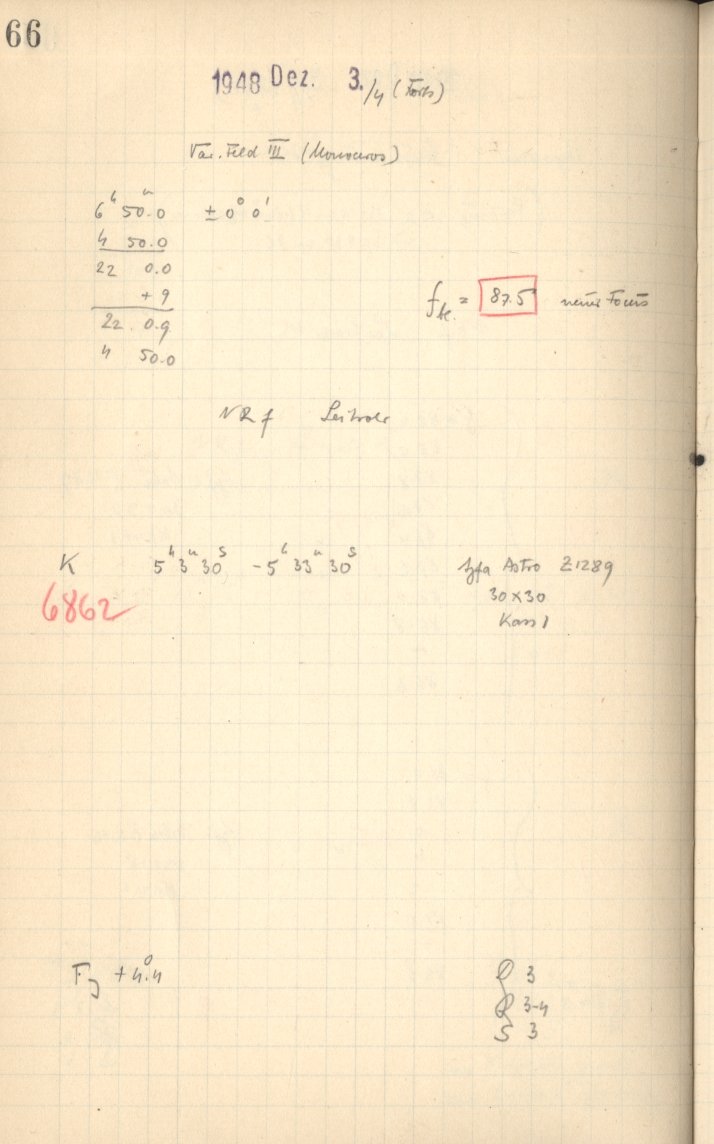 66
1948 Dez. 3./4 (Forts)
Var. Feld III (Monoceros)
6ʰ 50ᵐ.0 ± 0° 0'
4 50.0
22 0.0
+ 9
22 0.9
4 50.0
f = 87.5 neuer Focus
NRf Leitrohr
K 5ʰ 3ᵐ 30ˢ - 5ʰ 33ᵐ 30ˢ Agfa Astro Z1289
6862 30x30
Kass 1
F +4°.4
3
3-4
S 3